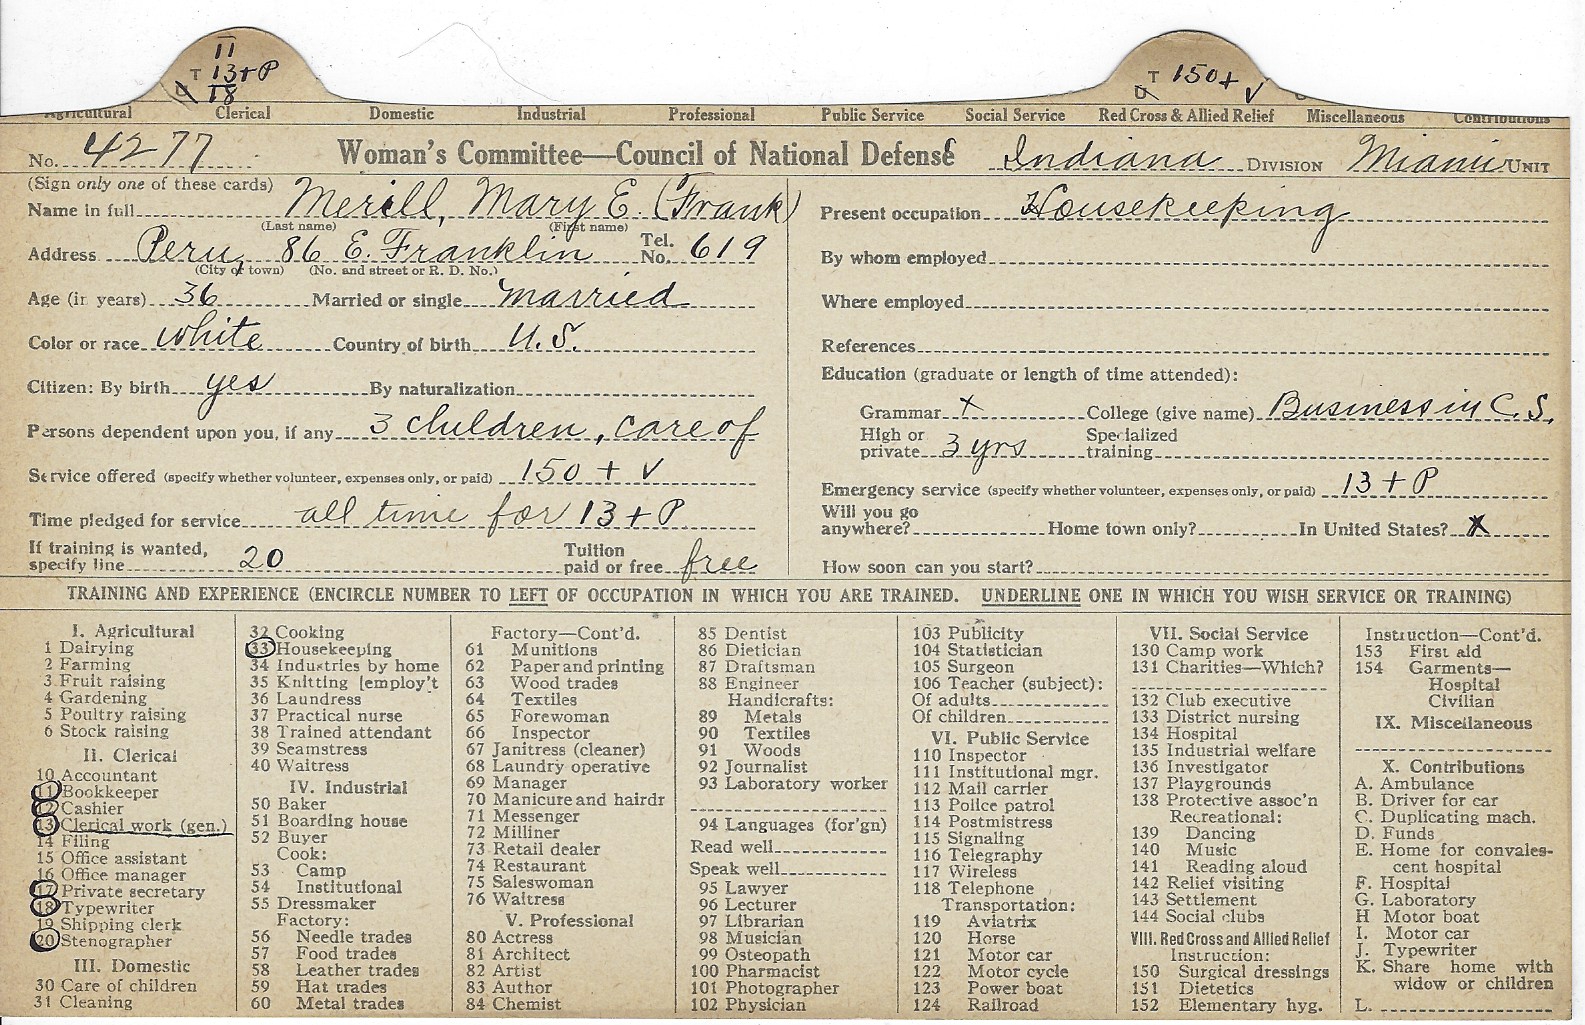 11
T 13+P
U 18
T 150+
U V
Agricultural Clerical Domestic Industrial Professional Public Service Social Service Red Cross & Allied Relief Miscellaneous Contributions
No. 4277 Woman's Committee—Council of National Defense Indiana DIVISION Miami UNIT
(Sign only one of these cards)
Name in full Merill, Mary E. (Frank)
(Last name) (First name)
Address Peru, 86 E. Franklin Tel. No. 619
(City or town) (No. and street or R. D. No.)
Age (in years) 36 Married or single married
Color or race white Country of birth U.S.
Citizen: By birth yes By naturalization
Persons dependent upon you, if any 3 children, care of
Service offered (specify whether volunteer, expenses only, or paid) 150 + V
Time pledged for service all time for 13 + P
If training is wanted, specify line 20 Tuition paid or free free
Present occupation Housekeeping
By whom employed
Where employed
References
Education (graduate or length of time attended):
Grammar x College (give name) Business in C.S.
High or private 3 yrs Specialized training
Emergency service (specify whether volunteer, expenses only, or paid) 13 + P
Will you go anywhere? Home town only? In United States? X
How soon can you start?
TRAINING AND EXPERIENCE (ENCIRCLE NUMBER TO LEFT OF OCCUPATION IN WHICH YOU ARE TRAINED. UNDERLINE ONE IN WHICH YOU WISH SERVICE OR TRAINING)
I. Agricultural
1 Dairying
2 Farming
3 Fruit raising
4 Gardening
5 Poultry raising
6 Stock raising
II. Clerical
10 Accountant
11 Bookkeeper
12 Cashier
13 Clerical work (gen.)
14 Filing
15 Office assistant
16 Office manager
17 Private secretary
18 Typewriter
19 Shipping clerk
20 Stenographer
III. Domestic
30 Care of children
31 Cleaning
32 Cooking
33 Housekeeping
34 Industries by home
35 Knitting [employ't
36 Laundress
37 Practical nurse
38 Trained attendant
39 Seamstress
40 Waitress
IV. Industrial
50 Baker
51 Boarding house
52 Buyer
Cook:
53 Camp
54 Institutional
55 Dressmaker
Factory:
56 Needle trades
57 Food trades
58 Leather trades
59 Hat trades
60 Metal trades
Factory—Cont'd.
61 Munitions
62 Paper and printing
63 Wood trades
64 Textiles
65 Forewoman
66 Inspector
67 Janitress (cleaner)
68 Laundry operative
69 Manager
70 Manicure and hairdr
71 Messenger
72 Milliner
73 Retail dealer
74 Restaurant
75 Saleswoman
76 Waitress
V. Professional
80 Actress
81 Architect
82 Artist
83 Author
84 Chemist
85 Dentist
86 Dietician
87 Draftsman
88 Engineer
Handicrafts:
89 Metals
90 Textiles
91 Woods
92 Journalist
93 Laboratory worker
94 Languages (for'gn)
Read well
Speak well
95 Lawyer
96 Lecturer
97 Librarian
98 Musician
99 Osteopath
100 Pharmacist
101 Photographer
102 Physician
103 Publicity
104 Statistician
105 Surgeon
106 Teacher (subject):
Of adults
Of children
VI. Public Service
110 Inspector
111 Institutional mgr.
112 Mail carrier
113 Police patrol
114 Postmistress
115 Signaling
116 Telegraphy
117 Wireless
118 Telephone
Transportation:
119 Aviatrix
120 Horse
121 Motor car
122 Motor cycle
123 Power boat
124 Railroad
VII. Social Service
130 Camp work
131 Charities—Which?
132 Club executive
133 District nursing
134 Hospital
135 Industrial welfare
136 Investigator
137 Playgrounds
138 Protective assoc'n
Recreational:
139 Dancing
140 Music
141 Reading aloud
142 Relief visiting
143 Settlement
144 Social clubs
VIII. Red Cross and Allied Relief
Instruction:
150 Surgical dressings
151 Dietetics
152 Elementary hyg.
Instruction—Cont'd.
153 First aid
154 Garments—
Hospital
Civilian
IX. Miscellaneous
X. Contributions
A. Ambulance
B. Driver for car
C. Duplicating mach.
D. Funds
E. Home for convales-
cent hospital
F. Hospital
G. Laboratory
H Motor boat
I. Motor car
J. Typewriter
K. Share home with
widow or children
L.